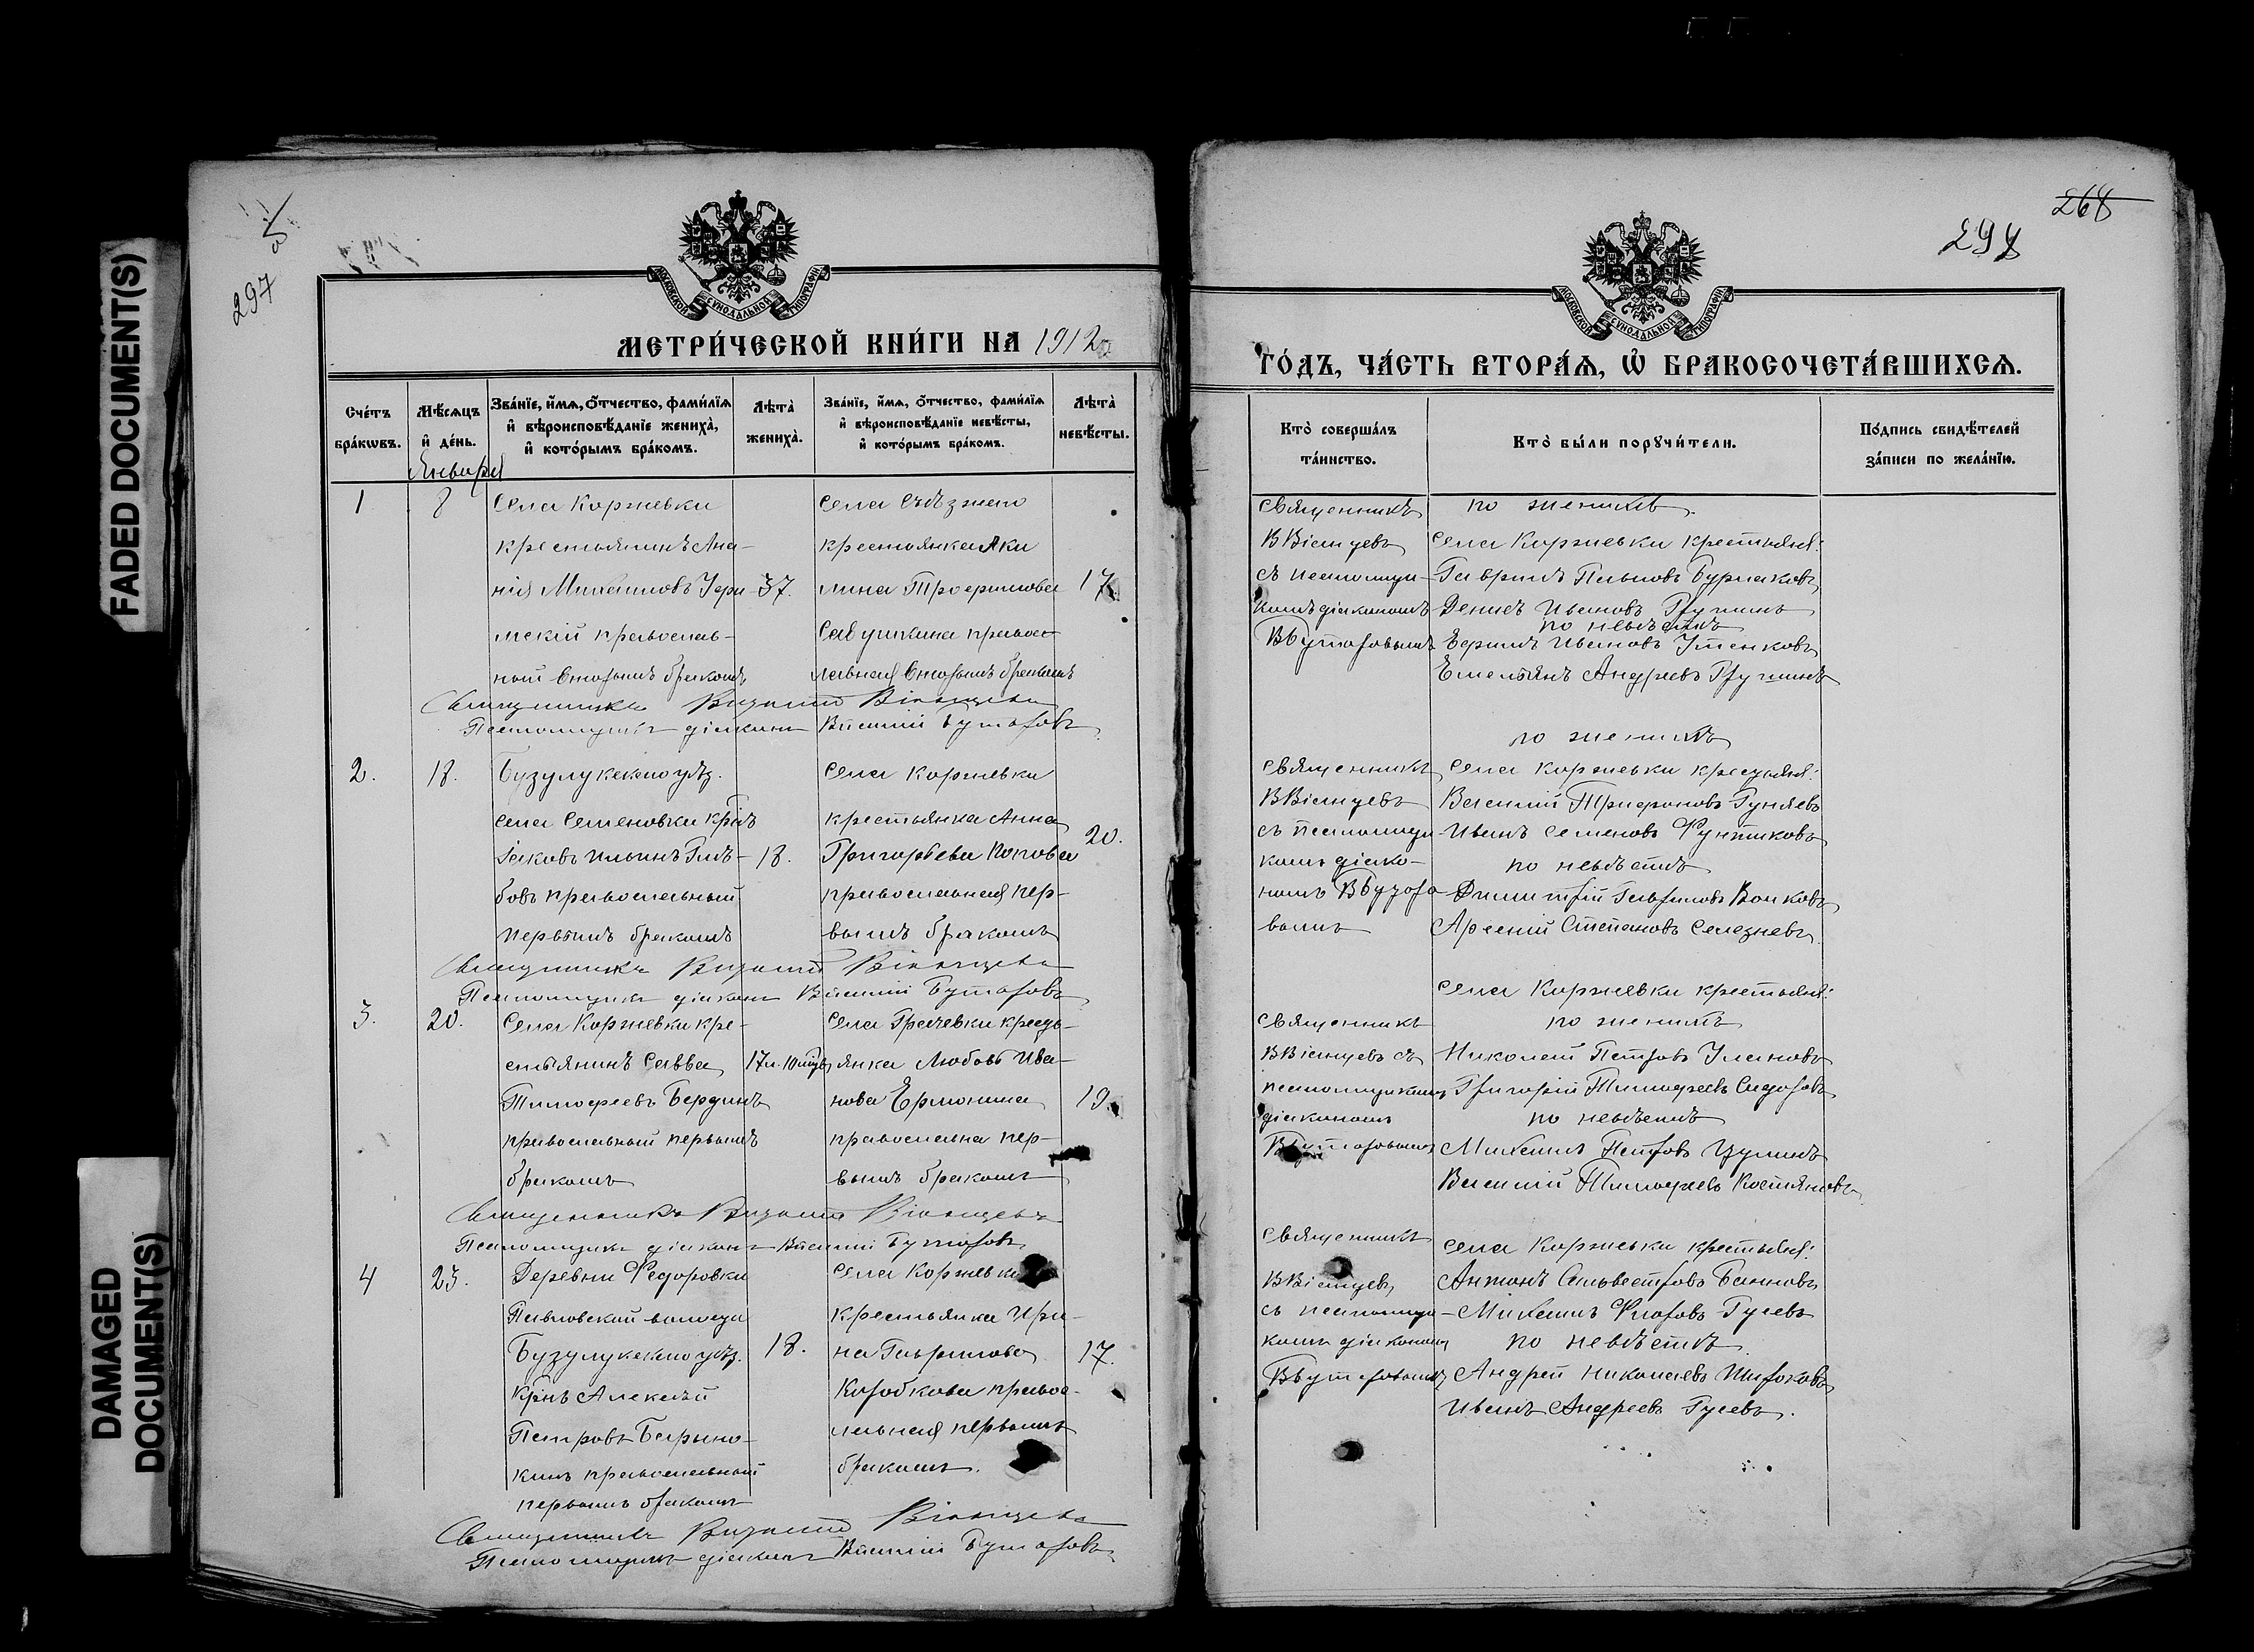 FADED DOCUMENT(S)
DAMAGED
DOCUMENT(S)
297
МОСКОВСКОЙ СѴНОДАЛЬНОЙ ТИПОГРАФІИ
МЕТРИ́ЧЕСКОЙ КНИ́ГИ НА 1912
Сче́тъ
бра́кѡвъ.
Мѣ́сяцъ
и҆ де́нь.
Января
Зва́нїе, и҆́мѧ, ѻ҆́тчество, фами́лїѧ
и҆ вѣроисповѣ́данїе жениха̀,
и҆ кото́рымъ бра́комъ.
Лѣта̀
жениха̀.
Зва́нїе, и҆́мѧ, ѻ҆́тчество, фами́лїѧ
и҆ вѣроисповѣ́данїе невѣ́сты,
и҆ кото́рымъ бра́комъ.
Лѣта̀
невѣ́сты.
1
8
Села Коржевки
крестьянинъ Ана-
нія Михаиловъ
православ-
ный вторымъ бракомъ
37.
Села Съѣзжего
крестьянка Аки
лина Трофимова
Савушкина правос
лавная вторымъ бракомъ
17
Священникъ Віанцевъ
Псаломщикъ діаконъ Василій Бутаровъ
2.
18.
Бузулукскаго уѣз.
села Семеновки крнъ
Іаковъ Ильинъ Глѣ-
бовъ православный
первымъ бракомъ
18.
Села Коржевки
крестьянка Анна
Григорьева Попова
православная пер-
вымъ бракомъ
20.
Священникъ Віанцевъ
Псаломщикъ діаконъ Василій Бутаровъ
3.
20.
Села Коржевки кре-
стьянинъ Савва
Тимофеевъ Бердинъ
православный первымъ
бракомъ
17 л. 10 мцв
Села Грачевки кресть-
янка Любовь Ива-
нова Ермошина
православна пер-
вымъ бракомъ
19.
Священникъ Віанцевъ
Псаломщикъ діаконъ Василій Бутаровъ
4
23.
Деревни Федоровки
Павловской волости
Бузулукскаго уѣз.
крнъ Алексѣй
Петровъ Барыш-
кинъ православный
первымъ бракомъ
18.
Села Коржевки
крестьянка Ири-
на Гаврилова
Коробкова правос-
лавная первымъ
бракомъ.
17.
Священникъ Віанцевъ
Псаломщикъ діаконъ Василій Бутаровъ
268
298
МОСКОВСКОЙ СѴНОДАЛЬНОЙ ТИПОГРАФІИ
ГО́ДЪ, ЧА́СТЬ ВТОРА́Ѧ, Ѽ БРАКОСОЧЕТА́ВШИХСѦ.
Кто̀ соверша́лъ
та́инство.
Кто̀ бы́ли порꙋчи́тели.
По́дпись свидѣ́телей
за́писи по жела́нїю.
Священникъ
В Віанцевъ
съ псаломщи-
комъ діакономъ
В Бутаровымъ
по женихѣ.
Села Коржевки крестьяня:
Гавриилъ Павловъ Бурлаковъ
Денисъ Ивановъ
по невѣстѣ
Ефимъ Ивановъ Утенковъ
Емельянъ Андреевъ
Священникъ
В Віанцевъ
съ псаломщи-
комъ діако-
номъ В Бутаро
вымъ
по женихѣ
Села Коржевки крестьяня:
Василій Трифоновъ Гуняевъ
Иванъ Семеновъ Фунтиковъ
по невѣстѣ
Димитрій Гавриловъ Волковъ
Арсеній Степановъ Селезневъ.
Священникъ
В Віанцевъ съ
псаломщикомъ
діакономъ
В Бутаровымъ
Села Коржевки крестьяня:
по женихѣ
Николай Петровъ Улановъ
Григорій Тимофеевъ Сидоровъ
по невѣстѣ
Михаилъ Петровъ Цулинъ
Василій Тимофеевъ Костяновъ
Священникъ
В Віанцевъ
съ псаломщи-
комъ діакономъ
В Бутаровымъ
Села Коржевки крестьяня:
Антонъ Сильвестровъ Банновъ
Михаилъ Флоровъ Гусевъ
по невѣстѣ.
Андрей Николаевъ Широковъ
Иванъ Андреевъ Гусевъ.